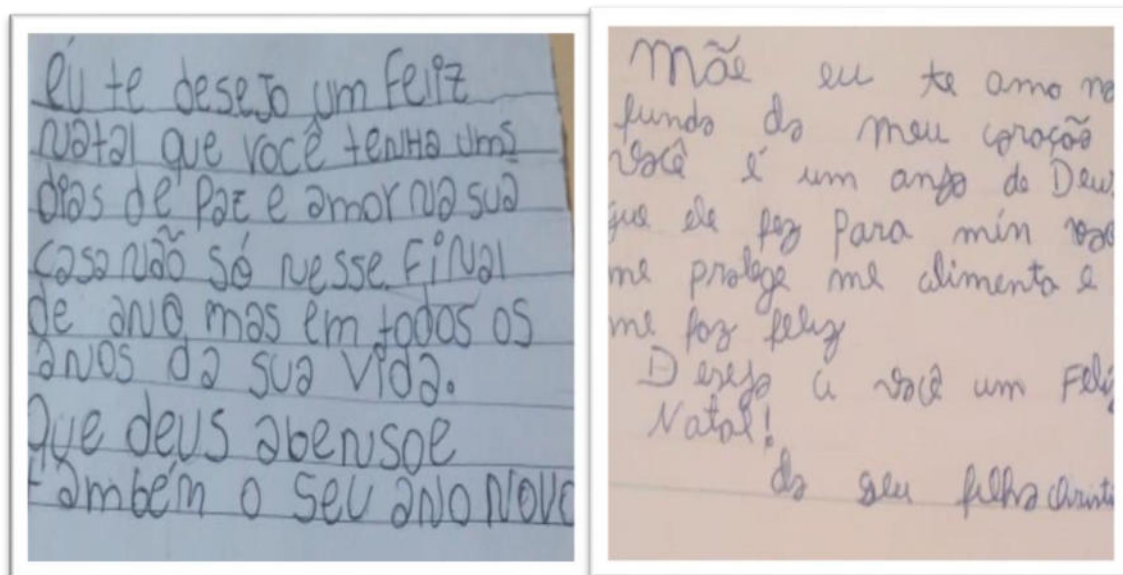 eu te desejo um feliz
natal que você tenha ums
dias de paz e amor na sua
casa não só nesse final
de ano mas em todos os
anos da sua vida.
que deus abensoe
também o seu ano novo
Mãe eu te amo no
fundo do meu coração
você é um anjo de Deus
que ele fez Para min você
me protege me alimenta e
me faz feliz
Desejo a você um Feliz
Natal!
do seu filho christi